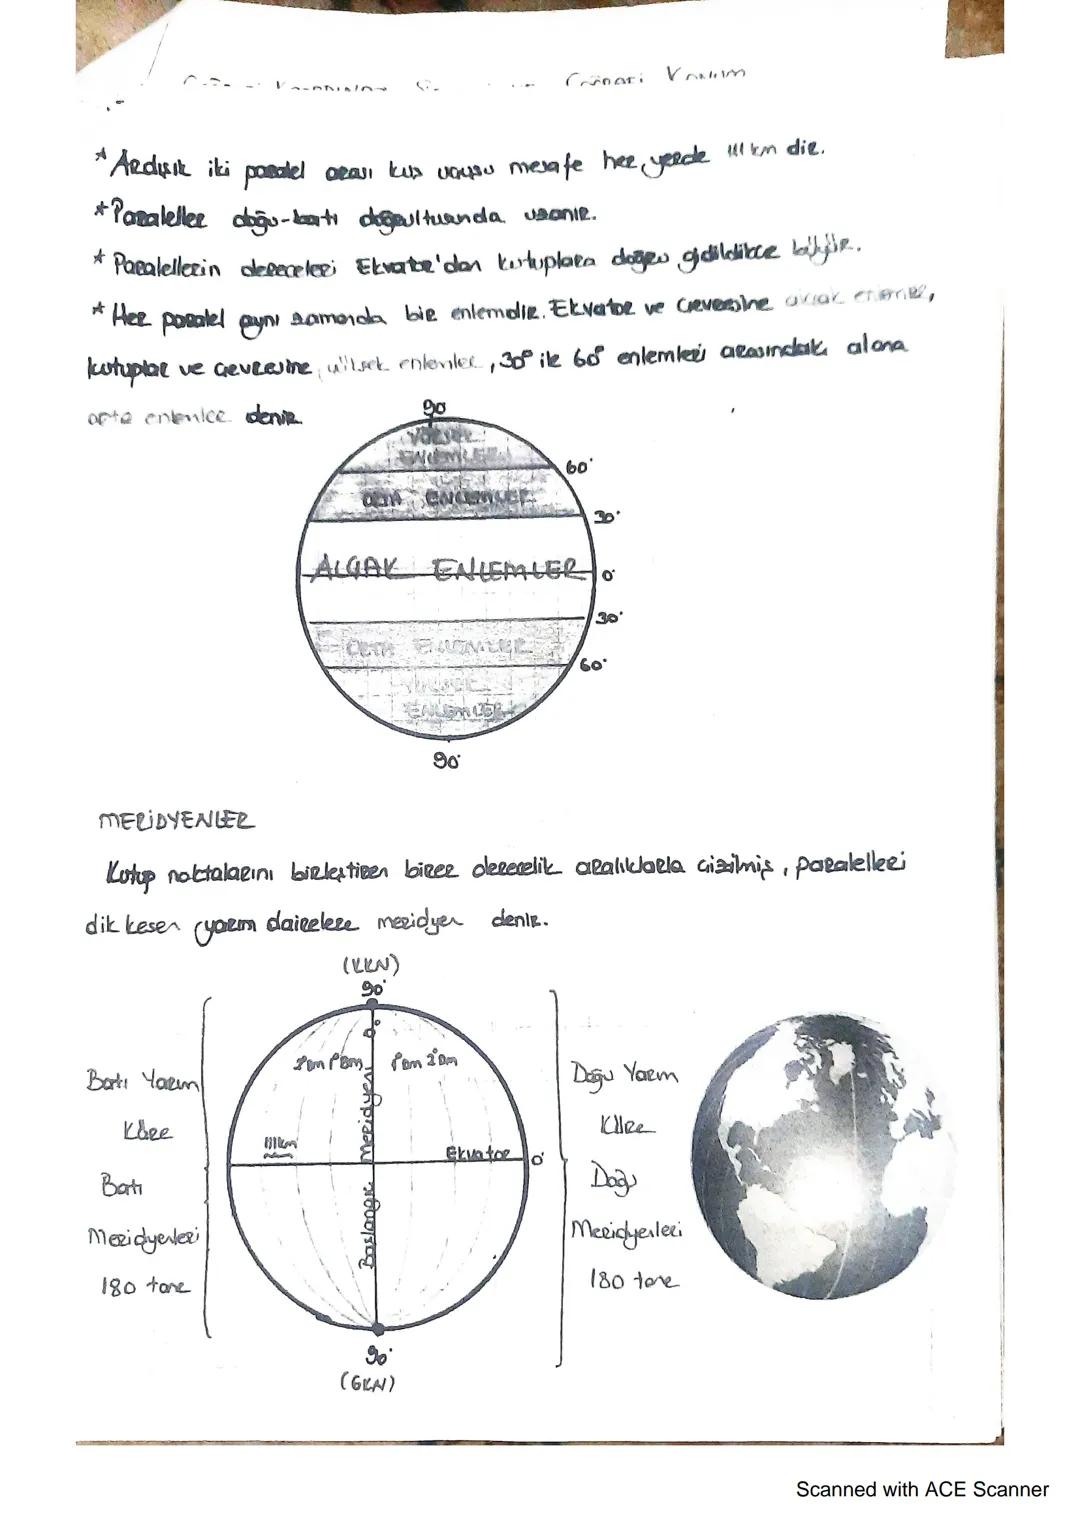 * Ardışık iki paralel arası kuş uçuşu mesafe her yerde 111 km dir.
* Paraleller doğu-batı doğrultusunda uzanır.
* Paralellerin dereceleri Ekvator'dan kutuplara doğru gidildikce büyür.
* Her paralel aynı zamanda bir enlemdir. Ekvator ve Çevresine alçak enlemler,
kutuplar ve çevresine yüksek enlemler, 30° ile 60° enlemleri arasındaki alana
orta enlemler denir.
90
YÜKSEK
ENLEMLER
60°
ORTA ENLEMLER
30°
ALÇAK ENLEMLER
0°
30°
ORTA ENLEMLER
60°
YÜKSEK
ENLEMLER
90°
MERİDYENLER
Kutup noktalarını birleştiren birer derecelik aralıklarla çizilmiş, paralelleri
dik kesen yarım dairelere meridyen denir.
(KKN)
90°
0°
Batı Yarım
Küre
Batı
Meridyenleri
180 tane
111km
Başlangıç Meridyeni
Ekvator
0°
Doğu Yarım
Küre
Doğu
Meridyenleri
180 tane
90°
(GKN)
Scanned with ACE Scanner